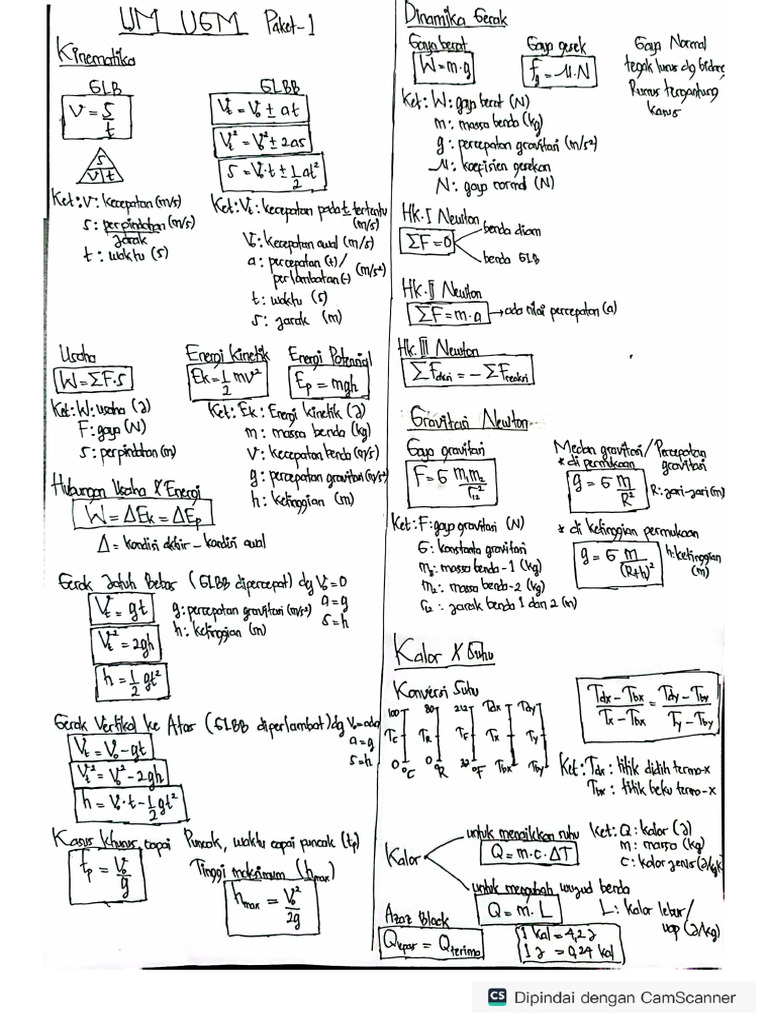 UM UGM Paket-1
Kinematika
GLB
V = s/t
s
v t
Ket: V: kecepatan (m/s)
s: perpindahan (m/s)
jarak
t: waktu (s)
GLBB
Vt = V0 ± at
Vt² = V0² ± 2as
s = V0·t ± 1/2 at²
Ket: Vt: kecepatan pada t tertentu (m/s)
V0: kecepatan awal (m/s)
a: percepatan (+)/
perlambatan (-) (m/s²)
t: waktu (s)
s: jarak (m)
Usaha
W = ΣF·s
Ket: W: usaha (J)
F: gaya (N)
s: perpindahan (m)
Energi Kinetik
Ek = 1/2 mv²
Energi Potensial
Ep = mgh
Ket: Ek: Energi kinetik (J)
m: massa benda (kg)
V: kecepatan benda (m/s)
g: percepatan gravitasi (m/s²)
h: ketinggian (m)
Hubungan Usaha & Energi
W = ΔEk = ΔEp
Δ = kondisi akhir - kondisi awal
Gerak Jatuh Bebas (GLBB dipercepat) dg V0 = 0
a = g
s = h
Vt = gt
Vt² = 2gh
h = 1/2 gt²
g: percepatan gravitasi (m/s²)
h: ketinggian (m)
Gerak Vertikal ke Atas (GLBB diperlambat) dg V0 = ada
a = g
s = h
Vt = V0 - gt
Vt² = V0² - 2gh
h = V0·t - 1/2 gt²
Kasus khusus capai Puncak, waktu capai puncak (tp)
tp = V0/g
Tinggi maksimum (hmax)
hmax = V0²/2g
Dinamika Gerak
Gaya berat
W = m·g
Gaya gesek
fg = μ·N
Gaya Normal
tegak lurus dg bidang
Rumus tergantung
kasus
Ket: W: gaya berat (N)
m: massa benda (kg)
g: percepatan gravitasi (m/s²)
μ: koefisien gesekan
N: gaya normal (N)
Hk. I Newton
ΣF = 0
benda diam
benda GLB
Hk. II Newton
ΣF = m·a → ada nilai percepatan (a)
Hk. III Newton
ΣFaksi = - ΣFreaksi
Gravitasi Newton
Gaya gravitasi
F = G m1m2/r12²
Ket: F: gaya gravitasi (N)
G: konstanta gravitasi
m1: massa benda-1 (kg)
m2: massa benda-2 (kg)
r12: jarak benda 1 dan 2 (m)
Medan gravitasi/Percepatan
gravitasi
* di permukaan
g = G m/R²
R: jari-jari (m)
* di ketinggian permukaan
g = G m/(R+h)²
h: ketinggian
(m)
Kalor & Suhu
Konversi Suhu
100 80 212 Tdx Tdy
TC TR TF Tx Ty
0 °C 0 °R 32 °F Tbx Tby
Tdx - Tbx / Tx - Tbx = Tdy - Tby / Ty - Tby
Ket: Tdx: titik didih termo-x
Tbx: titik beku termo-x
Kalor
untuk menaikkan suhu
Q = m·c·ΔT
untuk mengubah wujud benda
Q = m·L
Ket: Q: kalor (J)
m: massa (kg)
c: kalor jenis (J/kgK)
L: kalor lebur/
uap (J/kg)
Azaz Black
Qlepas = Qterima
1 kal = 4,2 J
1 J = 0,24 kal
CS Dipindai dengan CamScanner